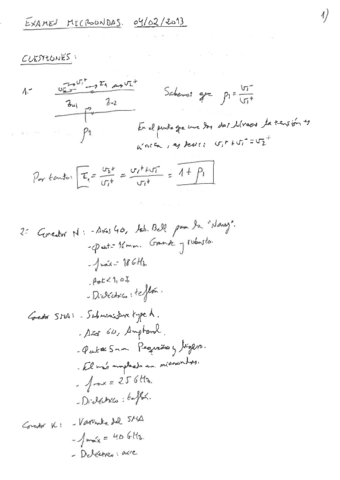 EXAMEN MICROONDAS. 04/02/2013
1)
CUESTIONES:
1-
Sabemos que ρ1 = v1⁻/v1⁺
Z01 Z02
ρ1
En el punto que une las dos líneas la tensión es
única, es decir: v1⁺+v1⁻=v2⁺
Por tanto: T1 = v2⁺/v1⁺ = v1⁺+v1⁻/v1⁺ = 1+ρ1
2: Conector N: - Años 40, Lab. Bell para la "Navy".
- 16mm. Grande y robusto.
- fmáx = 18GHz
- < 1,07
- Dieléctrico: teflón.
Conector SMA: - Subminiature type A.
- Años 60, Amphenol.
- 5mm Pequeño y ligero.
- El más empleado en microondas.
- fmax = 25GHz.
- Dieléctrico: teflón.
Conector K: - Variante del SMA
- fmáx = 40GHz
- Dieléctrico: aire